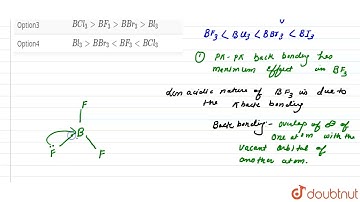 Option3 BCl₃ > BF₃ > BBr₃ > BI₃
Option4 BI₃ > BBr₃ < BF₃ < BCl₃
BF₃ < BCl₃ < BBr₃ < BI₃
① Pπ-Pπ back bonding has
maximum effect in BF₃
acidic nature of BF₃ is due to
the π back bonding
Back bonding:- overlap of
one atom with the
vacant orbital of
another atom.
F
B
F
F
doubtnut